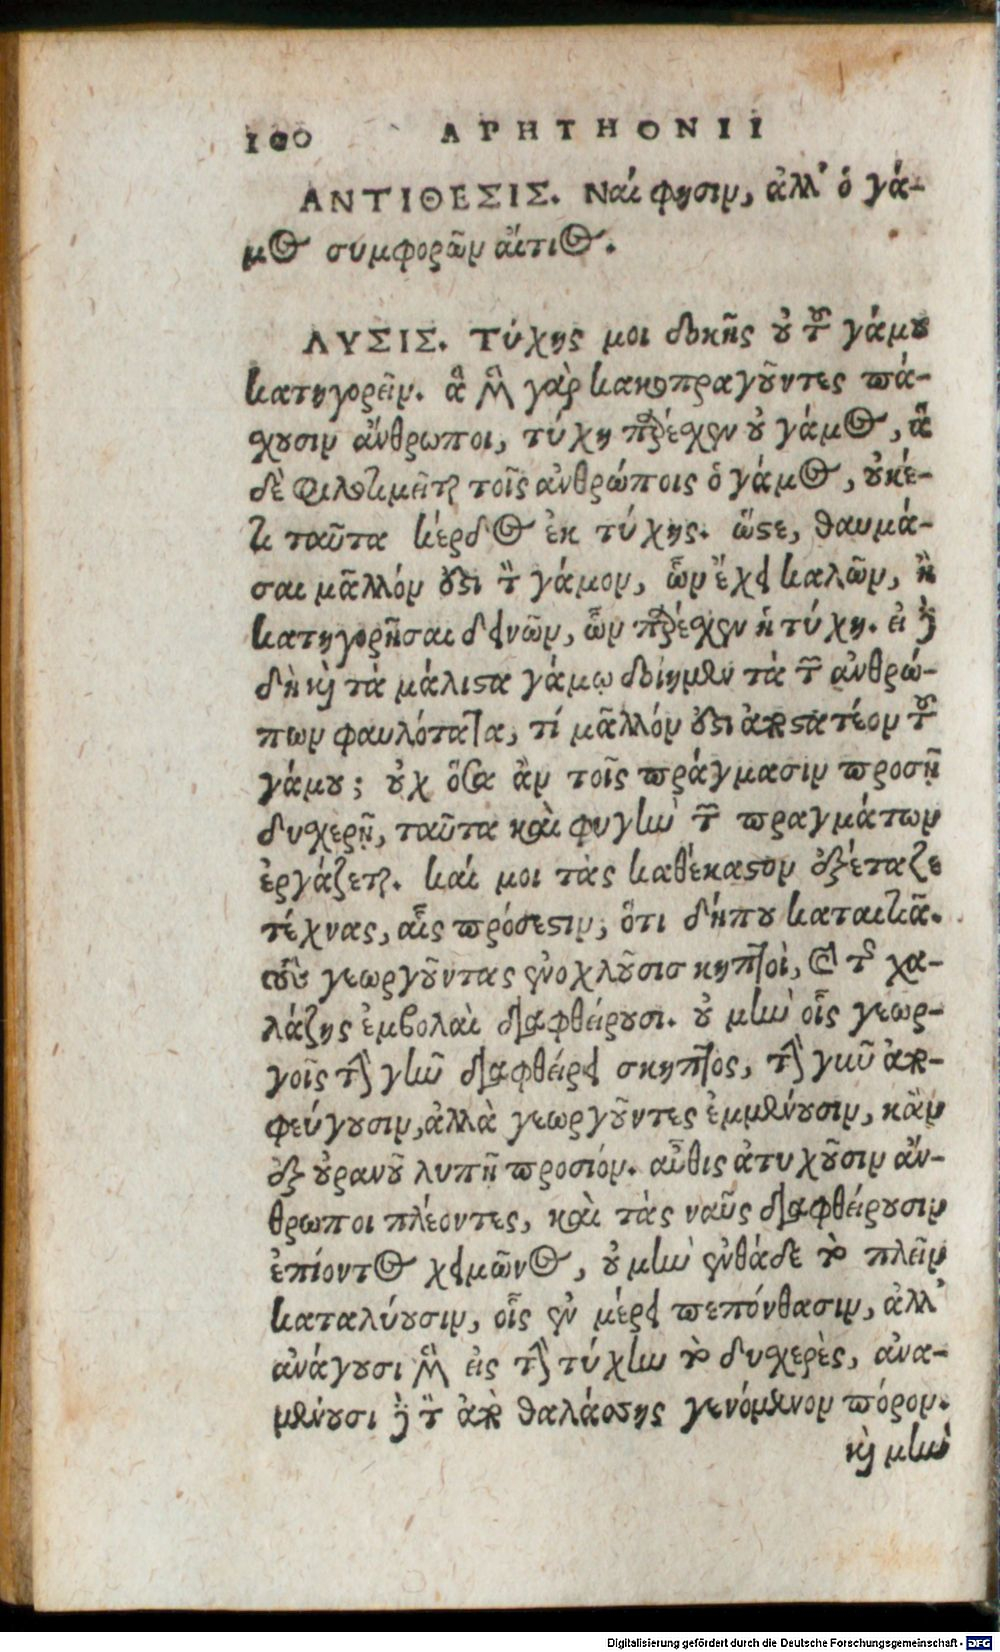 100 ΑΡΗΤΗΟΝΙΙ
ΑΝΤΙΘΕΣΙΣ. Ναί φησιν, ἀλλ' ὁ γά-
μος συμφορῶν αἴτιος.
ΛΥΣΙΣ. Τύχης μοι δοκῇς οὐ τοῦ γάμου
κατηγορεῖν. ἃ μὲν γὰρ κακοπραγοῦντες πά-
χουσιν ἄνθρωποι, τύχη παρέχει οὐ γάμος, ἃ
δὲ φιλοτιμεῖται τοῖς ἀνθρώποις ὁ γάμος, οὐκέ-
τι ταῦτα κέρδος ἐκ τύχης. ὥστε, θαυμά-
σαι μᾶλλόν ἐστι τὸν γάμον, ὧν ἔχει καλῶν, ἢ
κατηγορῆσαι δεινῶν, ὧν παρέχει ἡ τύχη. εἰ δὲ
δὴ καὶ τὰ μάλιστα γάμῳ δοίημεν τὰ τῶν ἀνθρώ-
πων φαυλότατα, τί μᾶλλόν ἐστι ἀποστατέον τοῦ
γάμου; οὐχ ὅσα ἂν τοῖς πράγμασιν προσῇ
δυχερῇ, ταῦτα καὶ φυγὴν τῶν πραγμάτων
ἐργάζεται. καί μοι τὰς καθέκαστον ἐξέταζε
τέχνας, αἷς πρόσεστιν, ὅτι δήπου καταιτιᾶ.
τοὺς γεωργοῦντας ἐνοχλοῦσισ κηπτοὶ, καὶ τῆς χα-
λάζης ἐμβολαὶ διαφθείρουσι. οὐ μὴν οἷς γεωρ-
γοῖς τὴν γῆν διαφθείρει σκηπτος, τὴν γῆν ἀπο-
φεύγουσιν, ἀλλὰ γεωργοῦντες ἐμμένουσιν, κἂν
ἐξ οὐρανοῦ λυπῇ προσιόν. αὖθις ἀτυχοῦσιν ἄν-
θρωποι πλέοντες, καὶ τὰς ναῦς διαφθείρουσιν
ἐπίοντος χειμῶνος, οὐ μὴν ἐνθάδε τὸ πλεῖν
καταλύουσιν, οἷς ἐν μέρει πεπόνθασιν, ἀλλ'
ἀνάγουσι μὲν εἰς τὴν τύχην τὸ δυχερὲς, ἀνα-
μένουσι δὲ τὸν ἀπὸ θαλάσσης γενόμενον πόρον.
καὶ μὴν
Digitalisierung gefördert durch die Deutsche Forschungsgemeinschaft - DFG